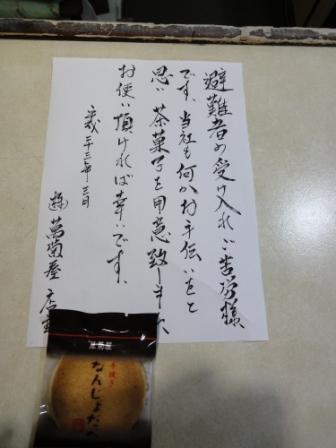 避難者の受け入れご苦労様
です。当社も何かお手伝いをと
思い茶菓子を用意致しました
お使い頂ければ幸いです。
平成二十三年三月
萬菊屋 店主
萬菊屋
手焼き
なんじょだべ